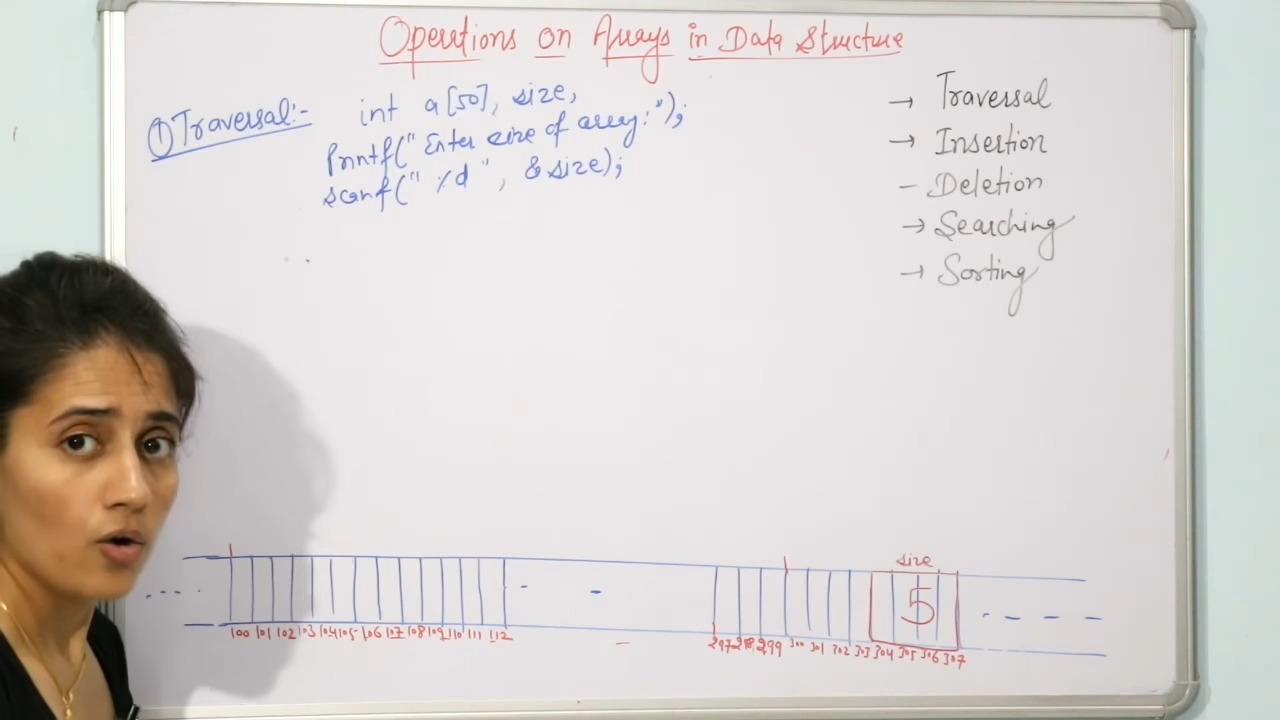 Operations on Arrays in Data Structure
① Traversal:- int a[50], size,
Printf("Enter size of array:");
scanf("%d", &size);
→ Traversal
→ Insertion
- Deletion
→ Searching
→ Sorting
size
5
100 101 102 103 104 105 106 107 108 109 110 111 112
297 298 299 300 301 302 303 304 305 306 307